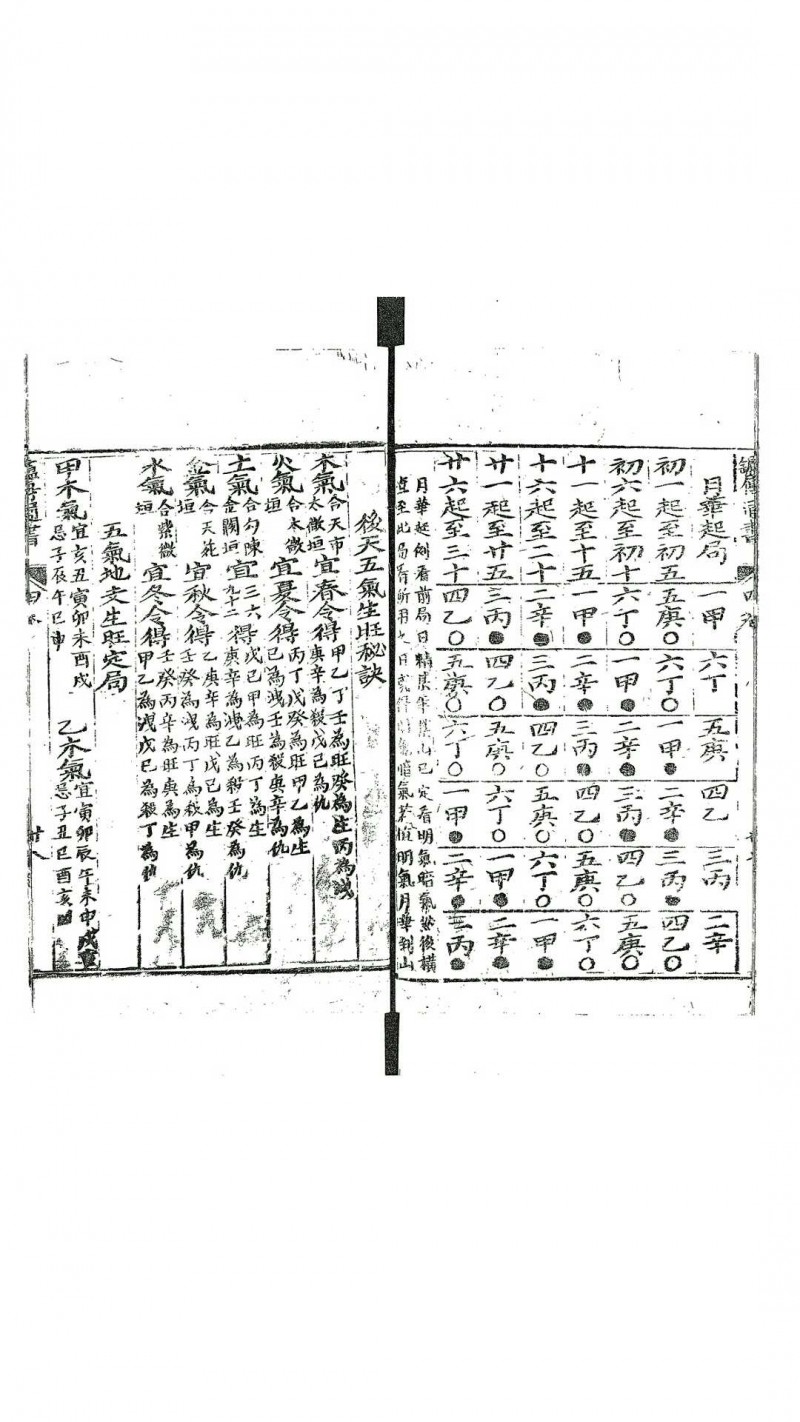 月華起局 一甲 六丁 五庚 四乙 三丙 二辛
初一起至初五 五庚○ 六丁○ 一甲● 二辛● 三丙● 四乙○
初六起至初十 六丁○ 一甲● 二辛● 三丙● 四乙○ 五庚○
十一起至十五 一甲● 二辛● 三丙● 四乙○ 五庚○ 六丁○
十六起至二十 二辛● 三丙● 四乙○ 五庚○ 六丁○ 一甲●
廿一起至廿五 三丙● 四乙○ 五庚○ 六丁○ 一甲● 二辛●
廿六起至三十 四乙○ 五庚○ 六丁○ 一甲● 二辛● 三丙●
月華起例看前局日精某年某山已定看明氣暗氣然後橫
直至此局看所用之日 暗氣若值明氣月華到山
後天五氣生旺秘訣
木氣合天市太微垣宜春令得甲乙丁壬為旺癸為生丙為洩庚辛為殺戊己為仇
火氣合太微垣宜夏令得丙丁戊癸為旺甲乙為生己為洩壬為殺庚辛為仇
土氣合勾陳金闕垣宜三六九十二得戊己甲為旺丙丁為生庚辛為洩乙為殺壬癸為仇
金氣合天苑垣宜秋令得乙庚辛為旺戊己為生壬癸為洩丙丁為殺甲為仇
水氣合紫微垣宜冬令得壬癸丙辛為旺庚為生甲乙為洩戊己為殺丁為仇
五氣地支生旺定局
甲木氣宜亥丑寅卯未酉戌忌子辰午巳申 乙木氣宜寅卯辰午未申戌忌子丑巳酉亥
四卷
廿八